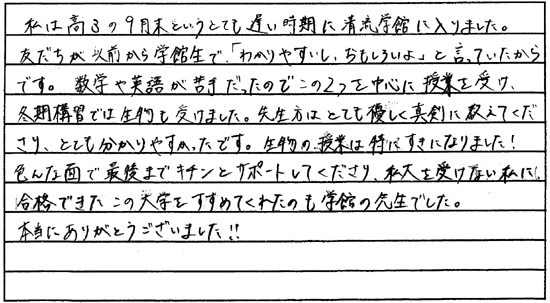 私は高3の9月末というとても遅い時期に清流学館に入りました。
友だちが以前から学館生で、「わかりやすいし、おもしろいよ」と言っていたから
です。数学や英語が苦手だったのでこの2つを中心に授業を受け、
冬期講習では生物も受けました。先生方はとても優しく真剣に教えてくだ
さり、とても分かりやすかったです。生物の授業は特にすきになりました!
色んな面で最後までキチンとサポートしてくださり、私大を受けない私に、
合格できたこの大学をすすめてくれたのも学館の先生でした。
本当にありがとうございました!!